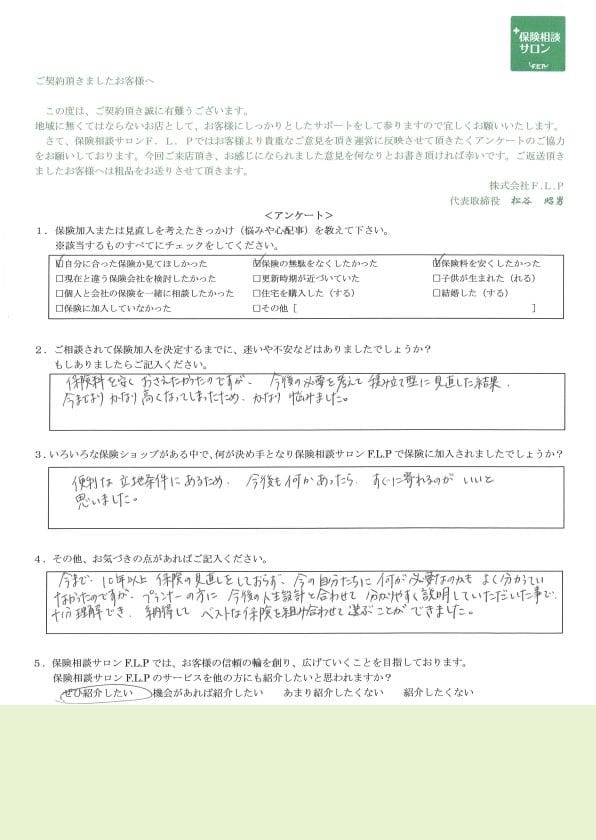 +保険相談
サロン
F.L.P
ご契約頂きましたお客様へ
この度は、ご契約頂き誠に有難うございます。
地域に無くてはならないお店として、お客様にしっかりとしたサポートをして参りますので宜しくお願いいたします。
さて、保険相談サロンF．L．Pではお客様より貴重なご意見を頂き運営に反映させて頂きたくアンケートのご協力
をお願いしております。今回ご来店頂き、お感じになられました意見を何なりとお書き頂ければ幸いです。ご返送頂き
ましたお客様へは粗品をお送りさせて頂きます。
株式会社F.L.P
代表取締役 松谷 昭男
＜アンケート＞
1．保険加入または見直しを考えたきっかけ（悩みや心配事）を教えて下さい。
※該当するものすべてにチェックをしてください。
☑自分に合った保険か見てほしかった ☑保険の無駄をなくしたかった ☑保険料を安くしたかった
□現在と違う保険会社を検討したかった □更新時期が近づいていた □子供が生まれた（れる）
□個人と会社の保険を一緒に相談したかった □住宅を購入した（する） □結婚した（する）
□保険に加入していなかった □その他 [ ]
2．ご相談されて保険加入を決定するまでに、迷いや不安などはありましたでしょうか？
もしありましたらご記入ください。
保険料を安くおさえたかったのですが、今後の必要を考えて積み立て型に見直した結果、
今までよりかなり高くなってしまったため、かなり悩みました。
3．いろいろな保険ショップがある中で、何が決め手となり保険相談サロンF.L.Pで保険に加入されましたでしょうか？
便利な立地条件にあるため、今後も何かあったら、すぐに寄れるのがいいと
思いました。
4．その他、お気づきの点があればご記入ください。
今まで、10年以上保険の見直しをしておらず、今の自分たちに何が必要なのかもよく分かってい
なかったのですが、プランナーの方に今後の人生設計と合わせて分かりやすく説明していただいた事で、
十分理解でき、納得してベストな保険を組み合わせて選ぶことができました。
5．保険相談サロンF.L.Pでは、お客様の信頼の輪を創り、広げていくことを目指しております。
保険相談サロンF.L.Pのサービスを他の方にも紹介したいと思われますか？
ぜひ紹介したい 機会があれば紹介したい あまり紹介したくない 紹介したくない